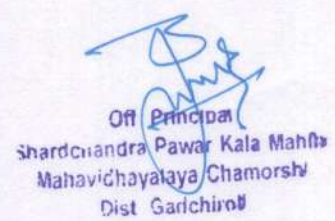 Off Principal
Shardchandra Pawar Kala Mahila
Mahavichayalaya Chamorshi
Dist Garichiroli